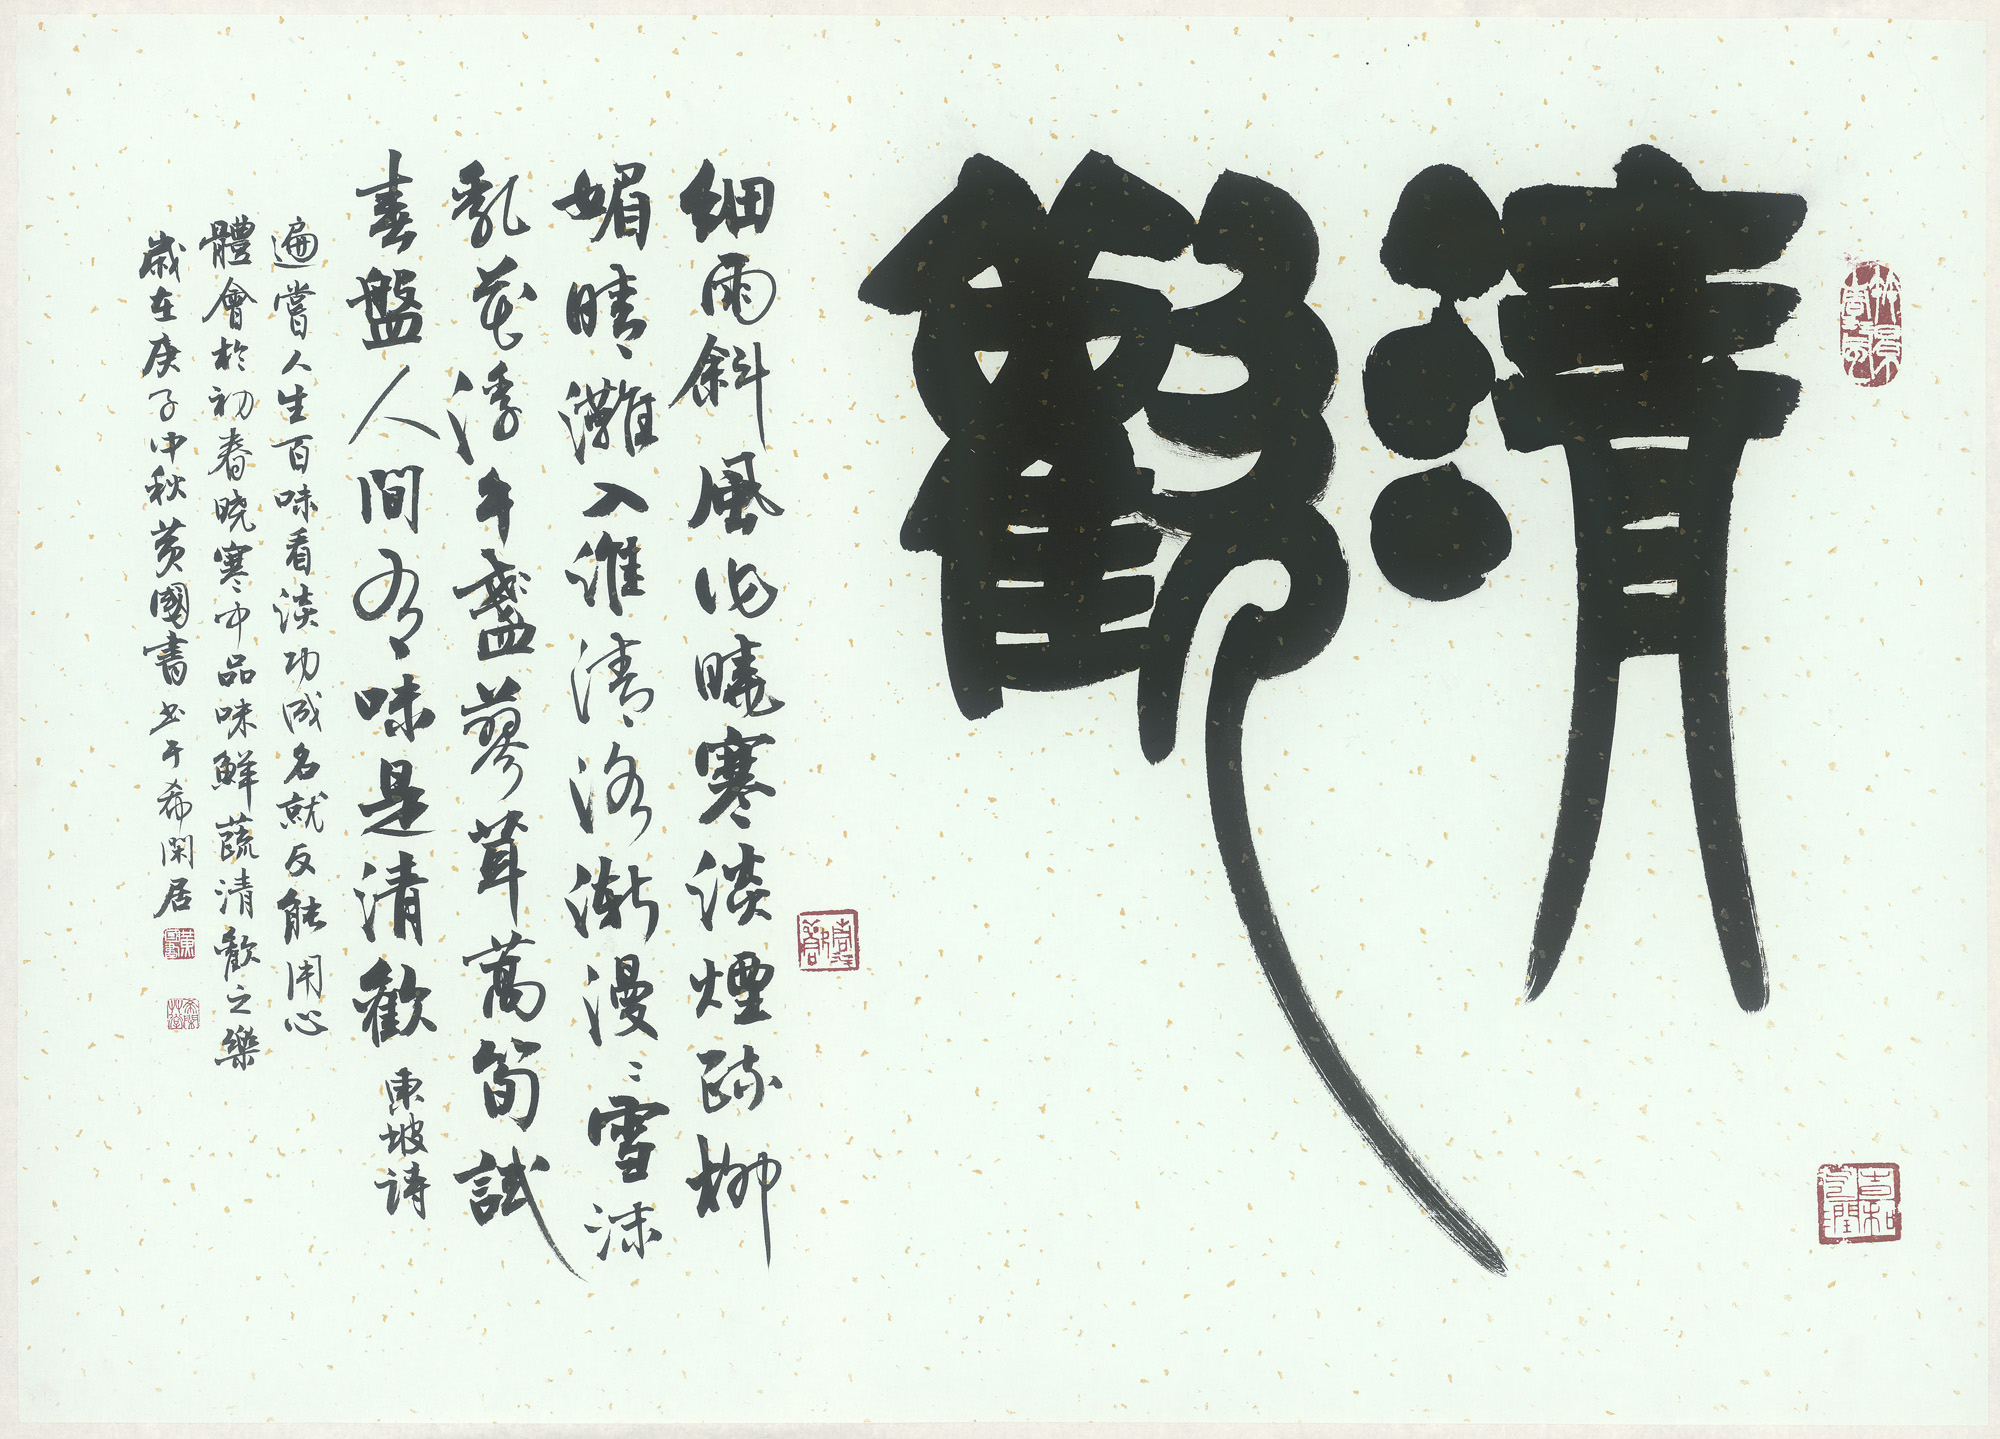 清歡
細雨斜風作曉寒淡煙疏柳
媚晴灘入淮清洛漸漫〻雪沫
乳花浮午盞蓼茸蒿筍試
春盤人間有味是清歡 東坡詩
遍嘗人生百味看淡功成名就反能用心
體會於初春曉寒中品味鮮蔬清歡之樂
歲在庚子中秋黃國書書于希閑居
吉和氣潤